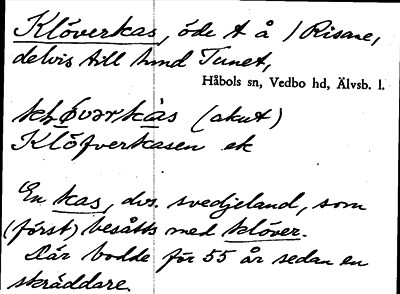 Klöverkas, öde t å / Risane,
delvis till hmd Tunet,
Håbols sn, Vedbo hd, Älvsb. l.
(akut)
Klöfverkasen ek
En kas, dvs. svedjeland, som
(först) besåtts med klöver.
Där bodde för 55 år sedan en
skräddare.